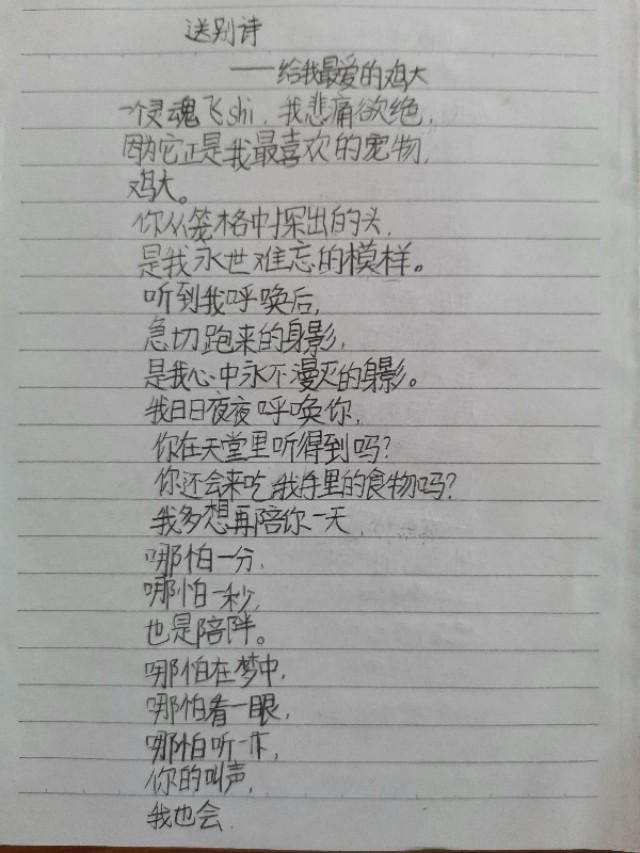 送别诗
——给我最爱的鸡大
一个灵魂飞shi，我悲痛欲绝，
因为它正是我最喜欢的宠物，
鸡大。
你从笼格中探出的头，
是我永世难忘的模样。
听到我呼唤后，
急切跑来的身影，
是我心中永不漫灭的身影。
我日日夜夜呼唤你，
你在天堂里听得到吗？
你还会来吃我手里的食物吗？
我多想再陪你一天，
哪怕一分，
哪怕一秒，
也是陪阵。
哪怕在梦中，
哪怕看一眼，
哪怕听一下，
你的叫声，
我也会